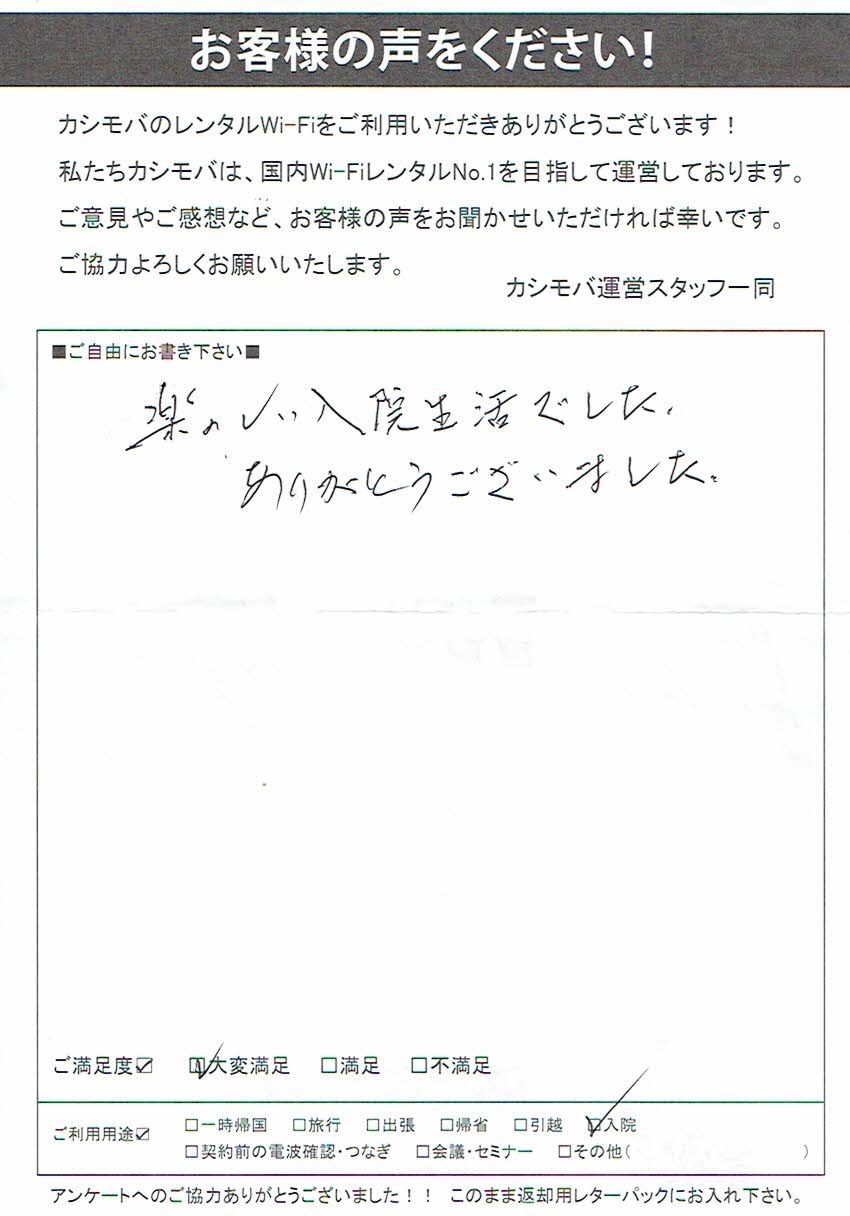 お客様の声をください！
カシモバのレンタルWi-Fiをご利用いただきありがとうございます！
私たちカシモバは、国内Wi-FiレンタルNo.1を目指して運営しております。
ご意見やご感想など、お客様の声をお聞かせいただければ幸いです。
ご協力よろしくお願いいたします。
カシモバ運営スタッフ一同
■ご自由にお書き下さい■
楽のしい入院生活でした。
ありがとうございました。
ご満足度☑ ☑大変満足 □満足 □不満足
ご利用用途☑ □一時帰国 □旅行 □出張 □帰省 □引越 ☑入院
□契約前の電波確認・つなぎ □会議・セミナー □その他( )
アンケートへのご協力ありがとうございました！！ このまま返却用レターパックにお入れ下さい。